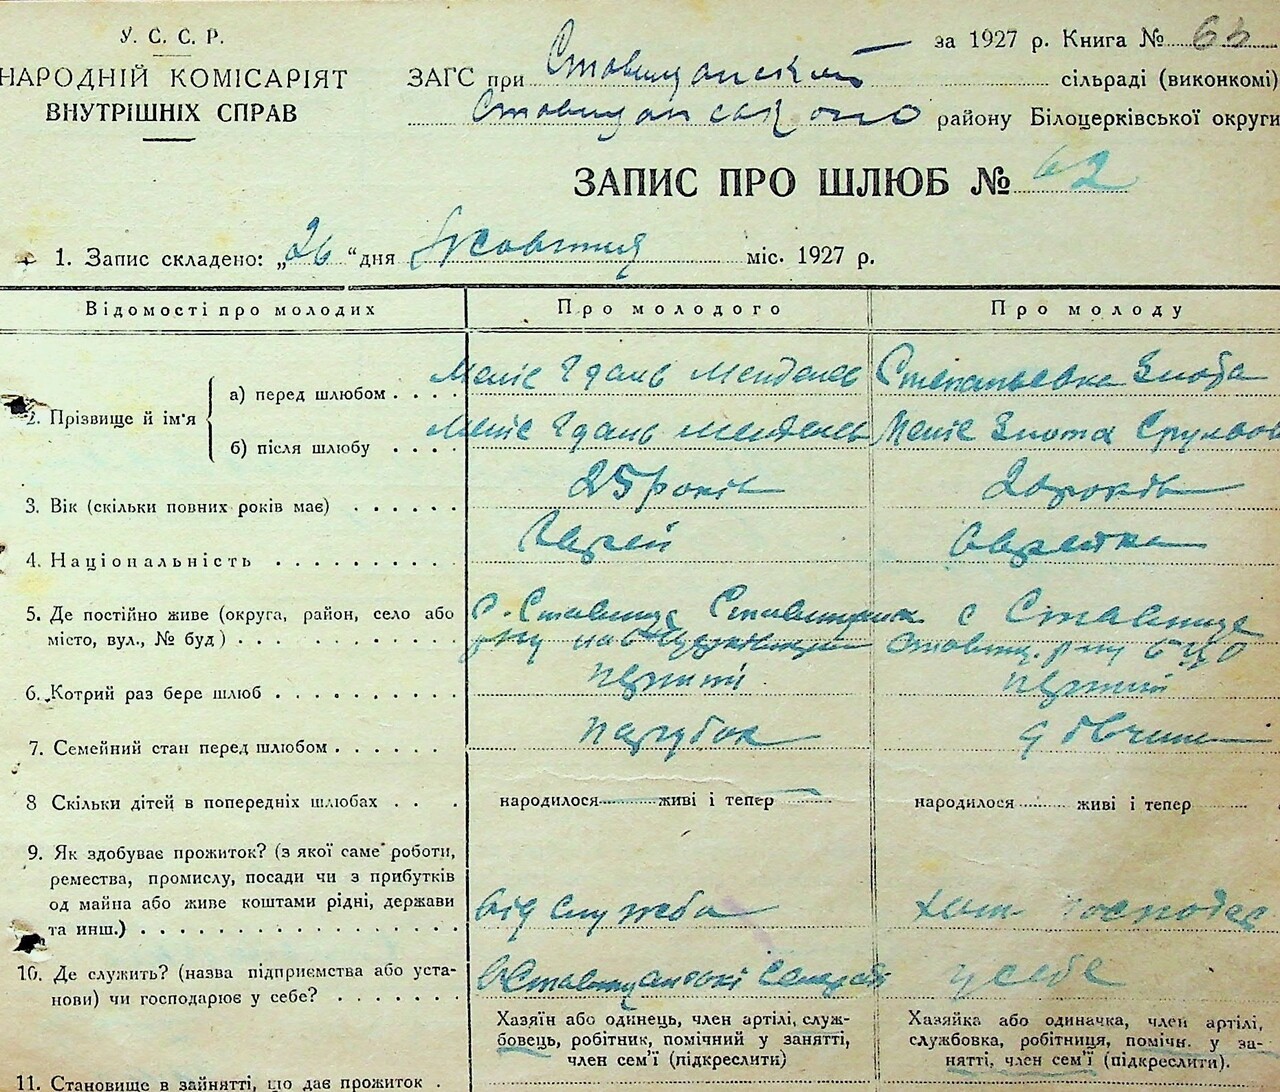 У. С. С. Р.
НАРОДНІЙ КОМІСАРІЯТ
ВНУТРІШНІХ СПРАВ
за 1927 р. Книга №
ЗАГС при Ставищанский сільраді (виконкомі)
Ставищанського району Білоцерківської округи
ЗАПИС ПРО ШЛЮБ № 62
1. Запис складено: „26 “ дня Жовтня міс. 1927 р.
Відомості про молодих Про молодого Про молоду
2. Прізвище й ім'я
а) перед шлюбом . . . .
б) після шлюбу . . . . Злота
3. Вік (скільки повних років має) . . . . . . 25 років 20 років
4. Національність . . . . . . . . . . Єврей Єврейка
5. Де постійно живе (округа, район, село або місто, вул., № буд) . . . . . . . . . . с. Ставище с Ставище
6. Котрий раз бере шлюб . . . . . . . . . перший перший
7. Семейний стан перед шлюбом . . . . . . парубок дівчина
8 Скільки дітей в попередніх шлюбах . . . народилося живі і тепер народилося живі і тепер
9. Як здобуває прожиток? (з якої саме роботи,
ремества, промислу, посади чи з прибутків
од майна або живе коштами рідні, держави
та инш.) . . . . . . . . . . від служби хат. господар
10. Де служить? (назва підприємства або уста-
нови) чи господарює у себе? . . . . . . . в Ставищанскі у себе
Хазяїн або одинець, член артілі, служ-
бовець, робітник, помічний у занятті,
член сем'ї (підкреслити)
Хазяйка або одиначка, член артілі,
службовка, робітниця, помічн. у за-
нятті, член сем'ї (підкреслити).
11. Становище в зайнятті, що дає прожиток .